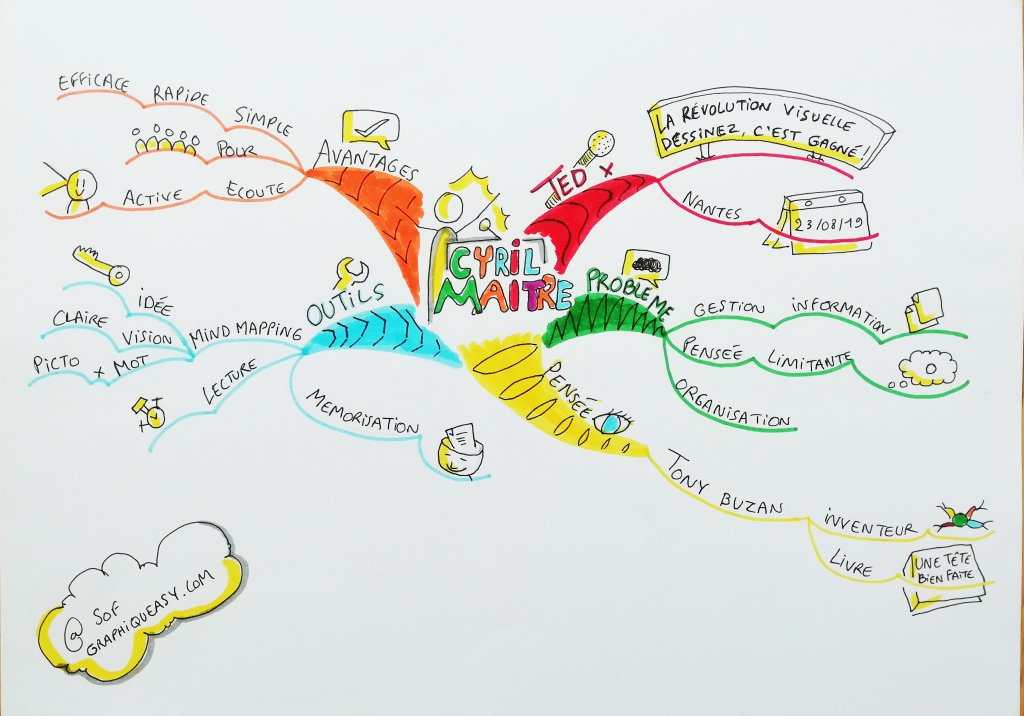 CYRIL
MAITRE
TED X
LA RÉVOLUTION VISUELLE
DESSINEZ, C'EST GAGNÉ!
NANTES
23/08/19
PROBLEME
GESTION INFORMATION
PENSÉE LIMITANTE
ORGANISATION
PENSÉE
TONY BUZAN
INVENTEUR
LIVRE
UNE TÊTE
BIEN FAITE
OUTILS
MIND MAPPING
IDÉE
CLAIRE VISION
PICTO X MOT
LECTURE
MEMORISATION
AVANTAGES
EFFICACE RAPIDE SIMPLE
POUR
ACTIVE ECOUTE
@ SOF
GRAPHIQUEASY.COM